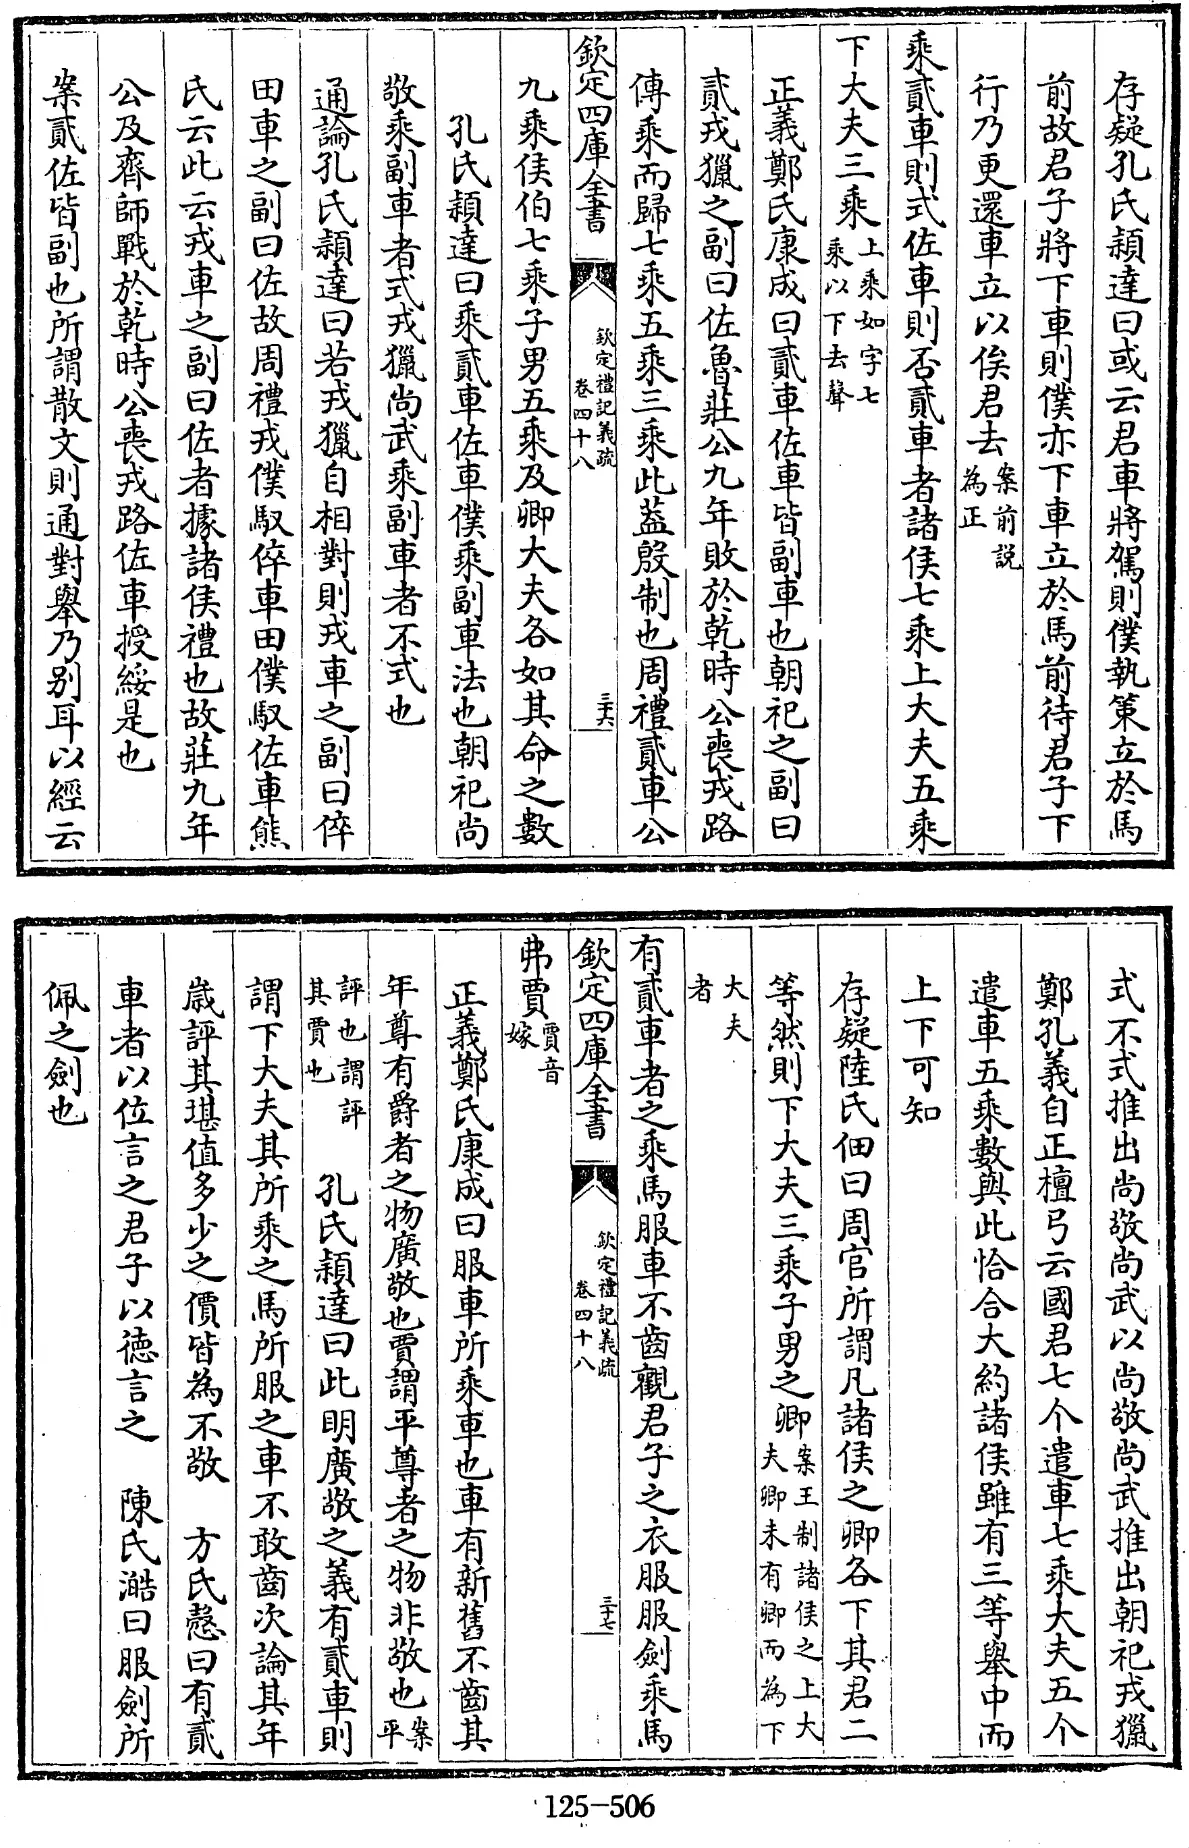 存疑孔氏穎達曰或云君車將駕則僕執策立於馬
前故君子將下車則僕亦下車立於馬前待君子下
行乃更還車立以俟君去案前説為正
乘貳車則式佐車則否貳車者諸侯七乘上大夫五乘
下大夫三乘上乘如字七乘以下去聲
正義鄭氏康成曰貳車佐車皆副車也朝祀之副曰
貳戎獵之副曰佐魯莊公九年敗於乾時公喪戎路
傳乘而歸七乘五乘三乘此葢殷制也周禮貳車公
欽定四庫全書
欽定禮記義疏
卷四十八
三十六
九乘侯伯七乘子男五乘及卿大夫各如其命之數
孔氏穎達曰乘貳車佐車僕乘副車法也朝祀尚
敬乘副車者式戎獵尚武乘副車者不式也
通論孔氏穎達曰若戎獵自相對則戎車之副曰倅
田車之副曰佐故周禮戎僕馭倅車田僕馭佐車熊
氏云此云戎車之副曰佐者據諸侯禮也故莊九年
公及齊師戰於乾時公喪戎路佐車授綏是也
案貳佐皆副也所謂散文則通對舉乃别耳以經云
式不式推出尚敬尚武以尚敬尚武推出朝祀戎獵
鄭孔義自正檀弓云國君七个遣車七乘大夫五个
遣車五乘數與此恰合大約諸侯雖有三等舉中而
上下可知
存疑陸氏佃曰周官所謂凡諸侯之卿各下其君二
等然則下大夫三乘子男之卿案王制諸侯之上大夫卿未有卿而為下
大夫者
有貳車者之乘馬服車不齒觀君子之衣服服劍乘馬
欽定四庫全書
欽定禮記義疏
卷四十八
三十七
弗賈賈音嫁
正義鄭氏康成曰服車所乘車也車有新舊不齒其
年尊有爵者之物廣敬也賈謂平尊者之物非敬也案平
評也謂評其賈也 孔氏穎達曰此明廣敬之義有貳車則
謂下大夫其所乘之馬所服之車不敢齒次論其年
歳評其堪值多少之價皆為不敬 方氏慤曰有貳
車者以位言之君子以德言之 陳氏澔曰服劍所
佩之劍也
125-506